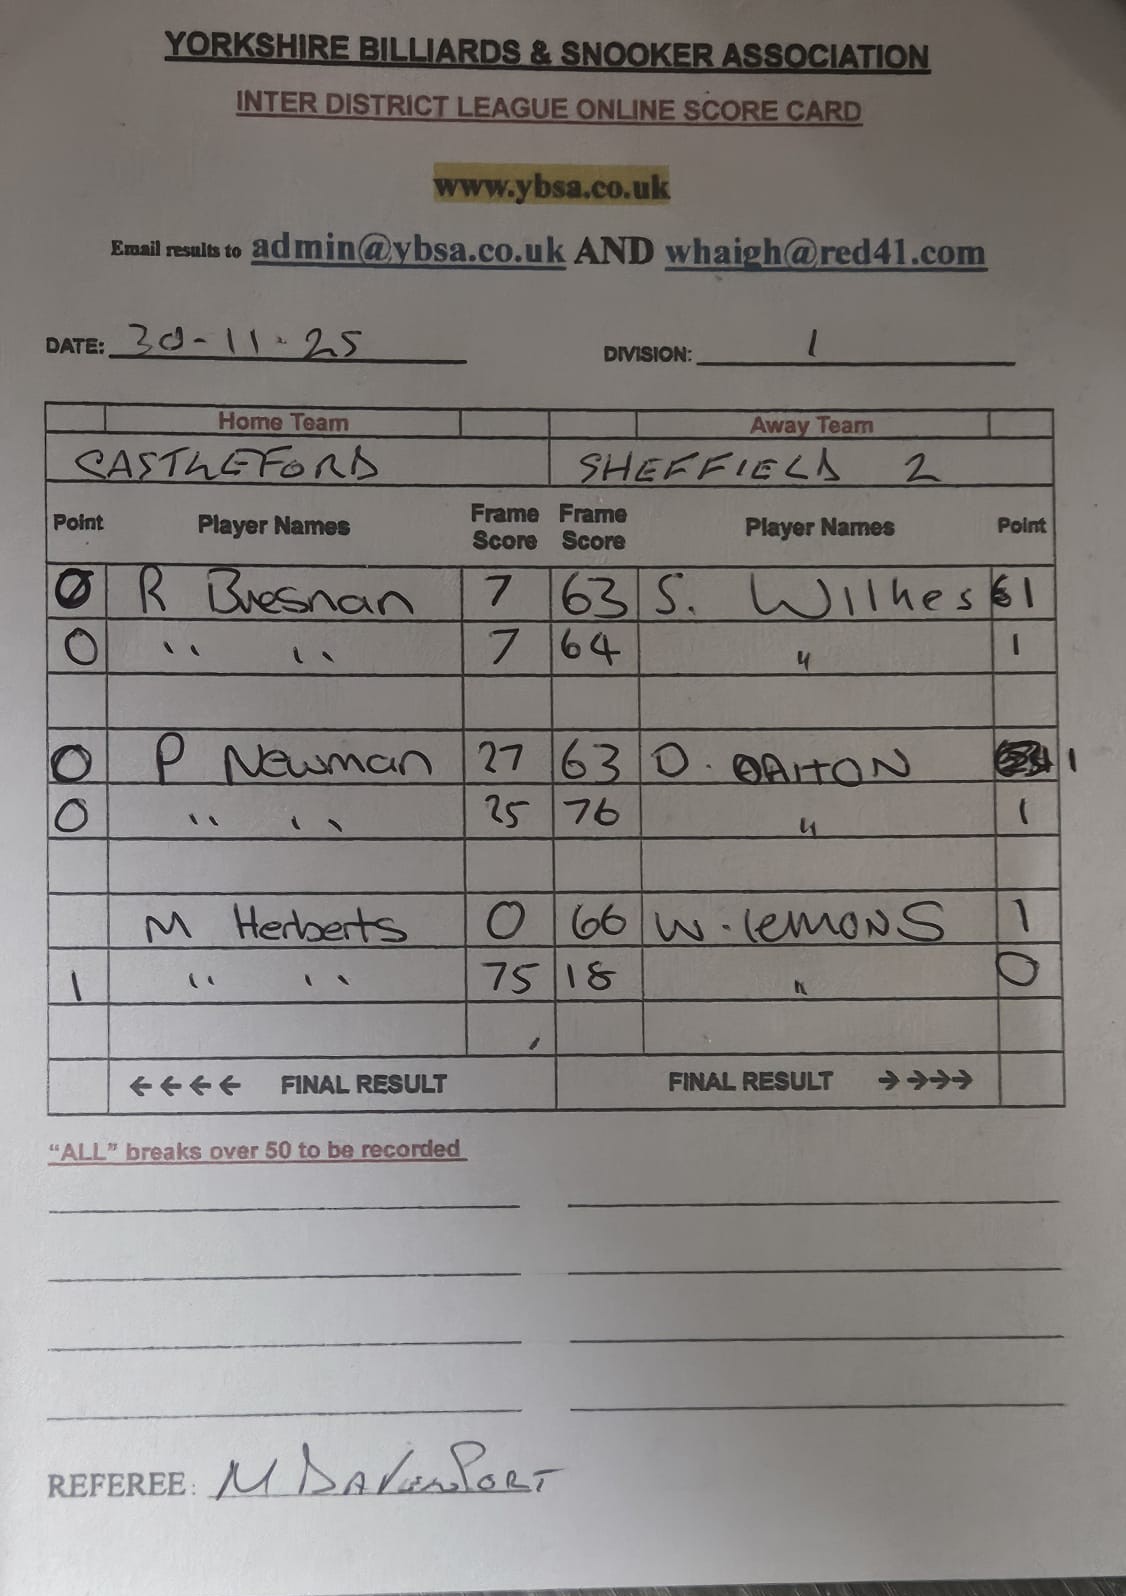 YORKSHIRE BILLIARDS & SNOOKER ASSOCIATION
INTER DISTRICT LEAGUE ONLINE SCORE CARD
www.ybsa.co.uk
Email results to admin@ybsa.co.uk AND whaigh@red41.com
DATE: 30-11-25 DIVISION: 1
Home Team Away Team
CASTLEFORD SHEFFIELD 2
Point Player Names Frame Score Frame Score Player Names Point
0 R Bresnan 7 63 S. Wilkes 1
0 " " 7 64 " 1
0 P Newman 27 63 D. DAITON 1
0 " " 25 76 " 1
M Herberts 0 66 W. lemons 1
1 " " 75 18 " 0
←←←← FINAL RESULT FINAL RESULT →→→→
"ALL" breaks over 50 to be recorded
REFEREE: M DAVENPORT